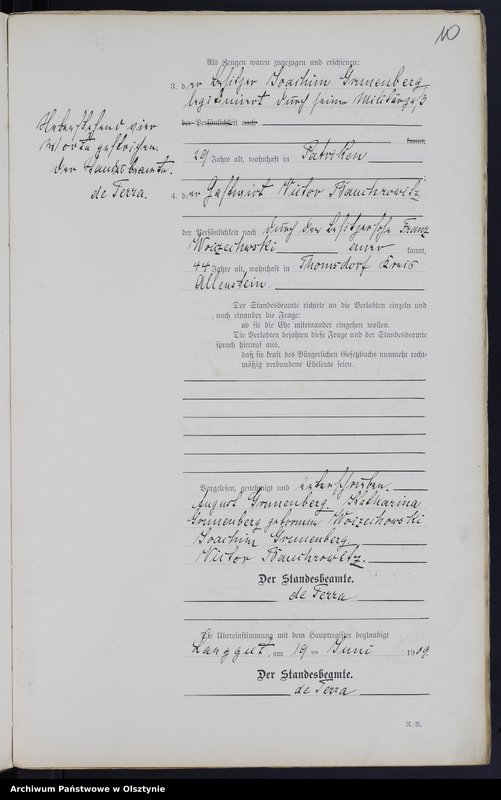 10
Als Zeugen waren zugezogen und erschienen:
3. der Besitzer Joachim Grunenberg
legitimiert durch seinen Militärpaß
der Persönlichkeit nach
kannt,
29 Jahre alt, wohnhaft in Patricken
4. der Gastwirt Victor Bauchrowitz
der Persönlichkeit nach durch den Besitzersohn Franz
Woizechowski aner kannt,
44 Jahre alt, wohnhaft in Thomsdorf Kreis
Allenstein.
Nebenstehend vier
Worte gestrichen.
Der Standesbeamte.
de Terra.
Der Standesbeamte richtete an die Verlobten einzeln und
nach einander die Frage:
ob sie die Ehe miteinander eingehen wollen.
Die Verlobten bejahten diese Frage und der Standesbeamte
sprach hierauf aus,
daß sie kraft des Bürgerlichen Gesetzbuchs nunmehr recht-
mäßig verbundene Eheleute seien.
Vorgelesen, genehmigt und unterschrieben.
August Grunenberg Katharina
Grunenberg geborene Woizechowski
Joachim Grunenberg
Victor Bauchrowitz.
Der Standesbeamte.
de Terra
Die Übereinstimmung mit dem Hauptregister beglaubigt
Langgut, am 19 ten Juni 1909
Der Standesbeamte.
de Terra
Archiwum Państwowe w Olsztynie